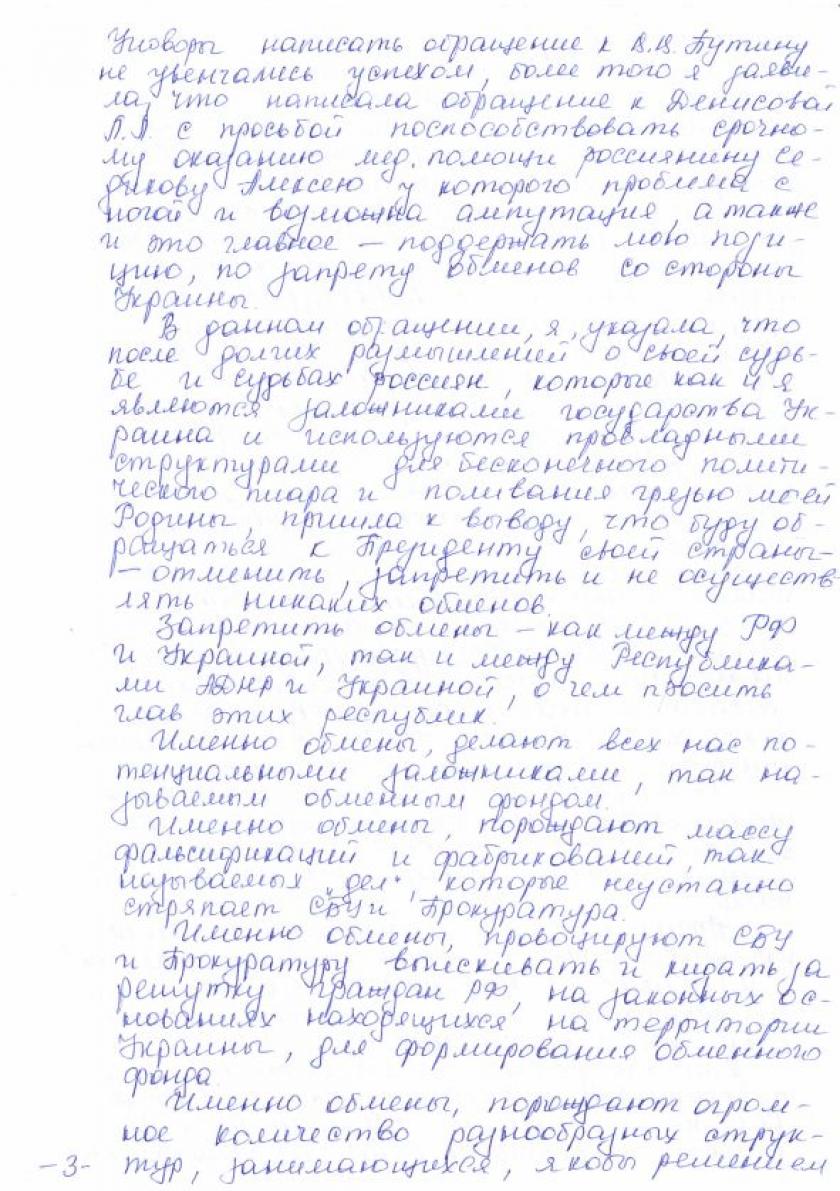 Уговоры написать обращение к В.В. Путину
не увенчались успехом, более того я заяви-
ла, что написала обращение к Денисовой
Л.Л. с просьбой поспособствовать срочно-
му оказанию мед. помощи россиянину Се-
дикову Алексею у которого проблема с
ногой и возможна ампутация, а также
и это главное — поддержать мою пози-
цию, по запрету обменов со стороны
Украины.
В данном обращении, я, указала, что
после долгих размышлений о своей судь-
бе и судьбах россиян, которые как и я
являются заложниками государства Ук-
раина и используются провладными
структурами для бесконечного полити-
ческого пиара и поливания грязью моей
Родины, пришла к выводу, что буду об-
ращаться к Президенту своей страны-
— отменить, запретить и не осуществ-
лять никаких обменов.
Запретить обмены — как между РФ
и Украиной, так и между Республика-
ми ЛДНР и Украиной, о чем просить
глав этих республик.
Именно обмены, делают всех нас по-
тенциальными заложниками, так на-
зываемым обменным фондом.
Именно обмены, порождают массу
фальсификаций и фабрикований, так
называемых „дел“, которые неустанно
стряпает СБУ и Прокуратура.
Именно обмены, провоцируют СБУ
и Прокуратуру выискивать и кидать за
решутку граждан РФ, на законных ос-
нованиях находящихся на территории
Украины, для формирования обменного
фонда.
Именно обмены, порождают огром-
ное количество разнообразных струк-
-3- тур, занимающихся, якобы решением